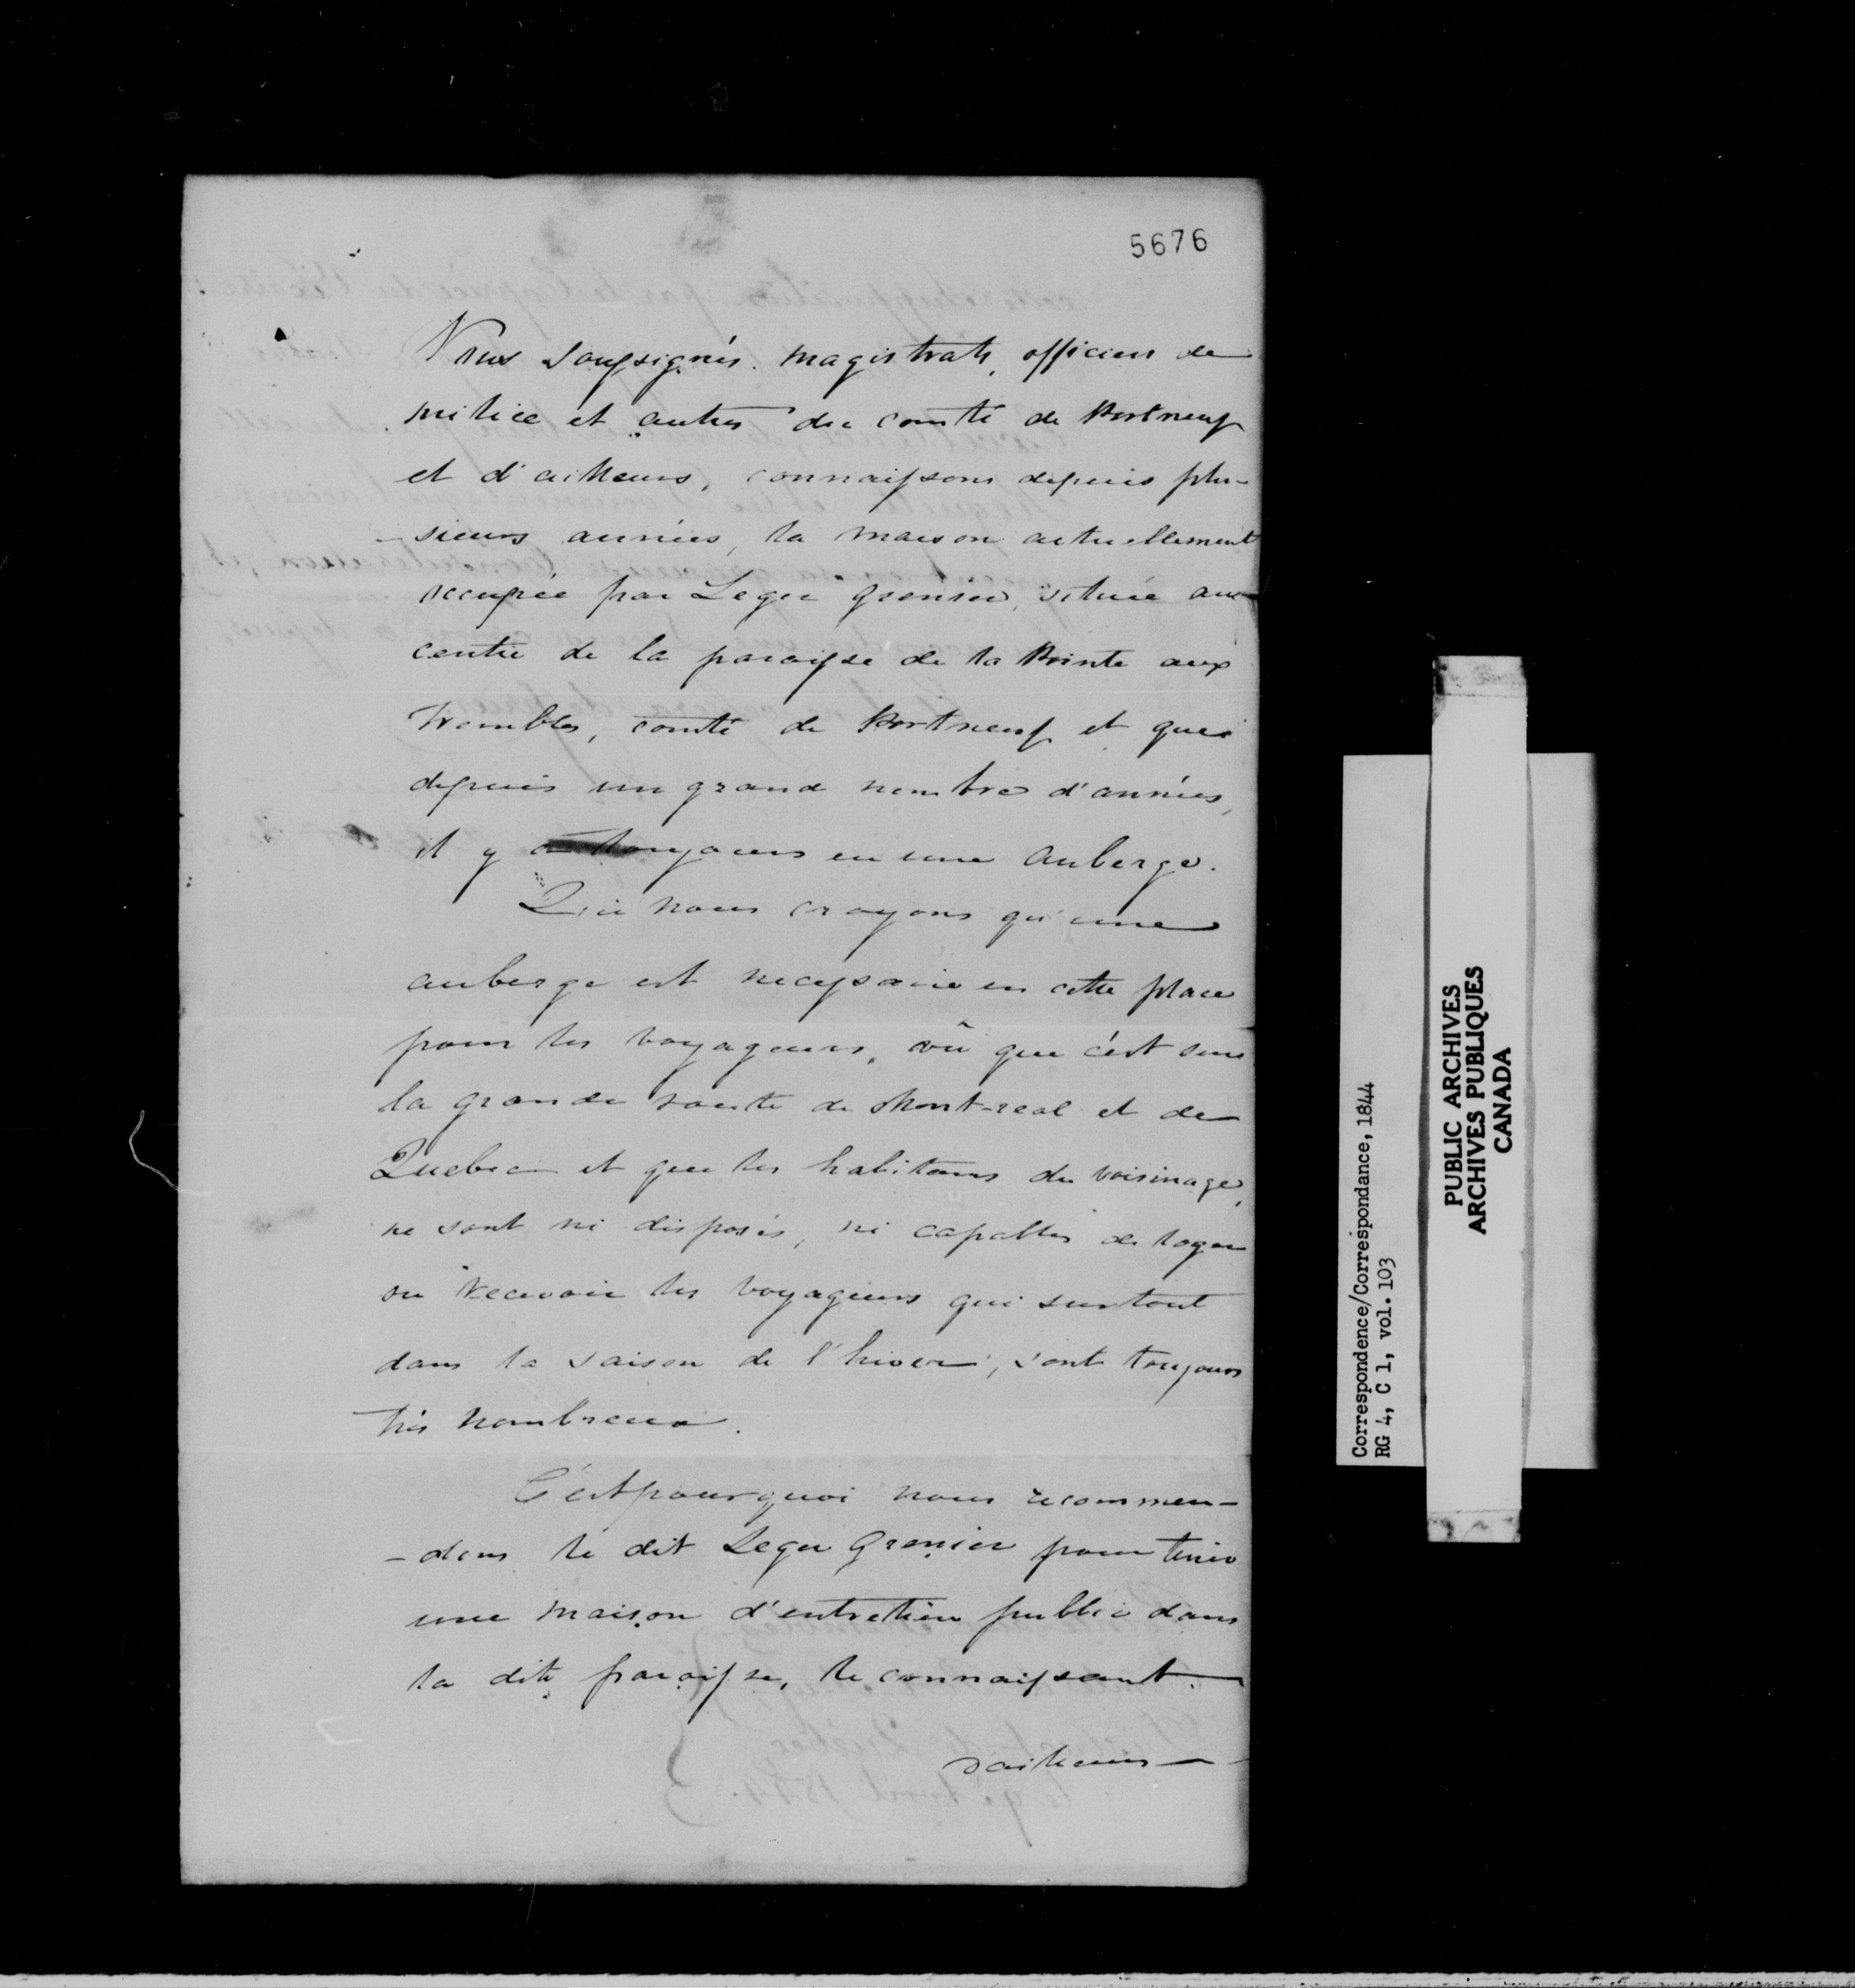 5676
Nous soussignés magistrats, officiers de
milice et autres du comté de Portneuf
et d'ailleurs, connaissons depuis plu-
-sieurs années, la maison actuellement
occupée par Leger Grenier, située au
centre de la paroisse de la Pointe aux
Trembles, comté de Portneuf et que
depuis un grand nombre d'années,
il y a toujours eu une auberge.
Que nous croyons qu'une
auberge est necessaire en cette place
pour les voyageurs, vû que c'est sur
la grande route de Mont-real et de
Quebec et que les habitans du voisinage,
ne sont ni disposés, ni capables de loger
ou recevoir les voyageurs qui surtout
dans la saison de l'hiver, sont toujours
très nombreux.
C'est pourquoi nous recommen-
-dons le dit Leger Grenier pour tenir
une maison d'entretien public dans
la dite paroisse, le connaissant
d'ailleurs
Correspondence/Correspondance, 1844
RG 4, C 1, vol. 103
PUBLIC ARCHIVES
ARCHIVES PUBLIQUES
CANADA